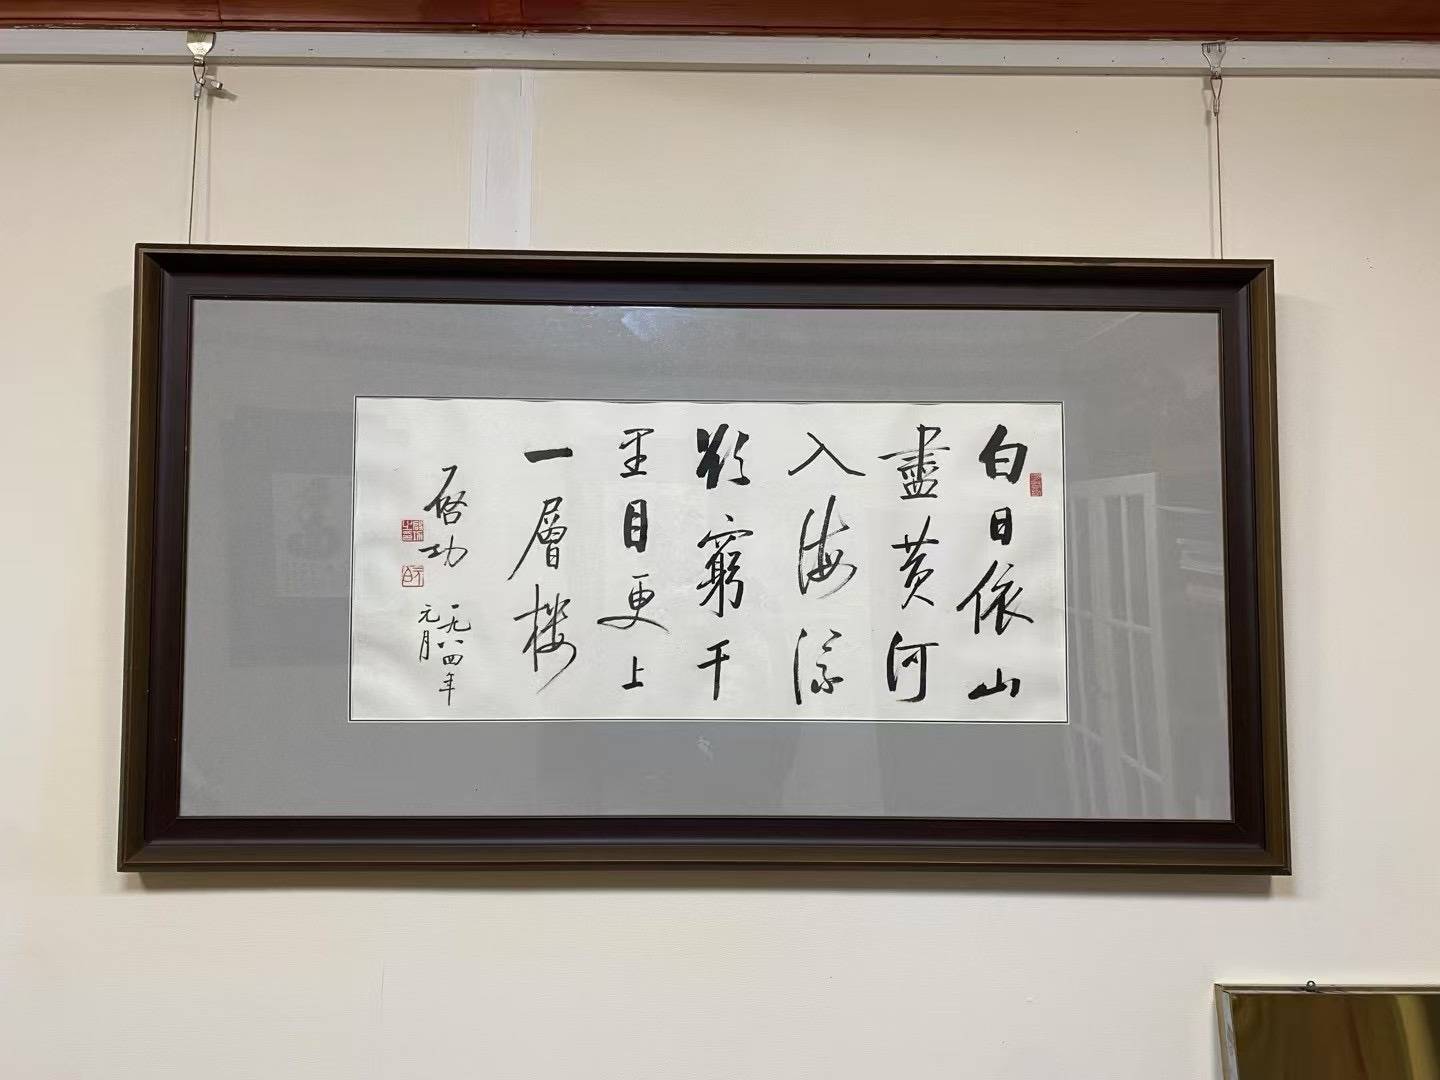 白日依山
盡黃河
入海流
欲窮千
里目更上
一層樓
啓功
一九八四年
元月